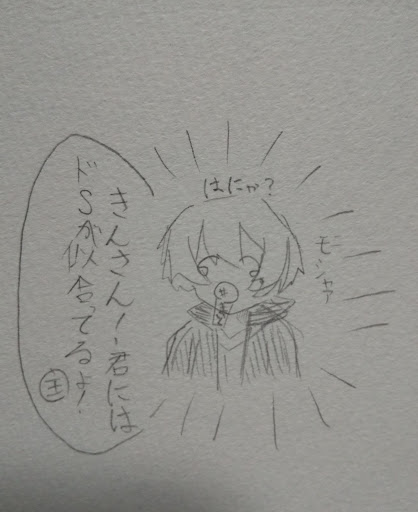 はにゃ?
モシャァ
きんさん！君には
ドSが似合ってるよ！
主